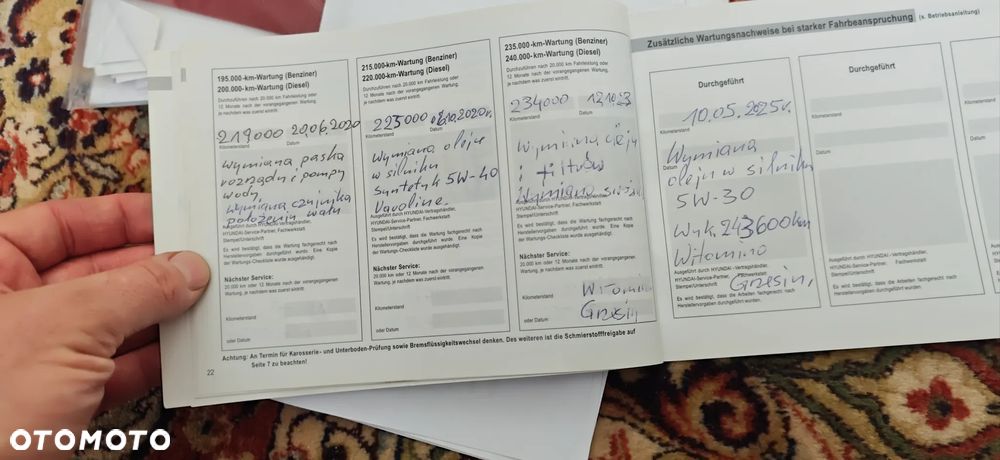 195.000-km-Wartung (Benziner)
200.000-km-Wartung (Diesel)
Durchzuführen nach 20.000 km Fahrleistung oder
12 Monate nach der vorangegangenen Wartung,
je nachdem was zuerst eintritt.
219000 20.06.2020
Kilometerstand Datum
Wymiana paska
rozrządu i pompy
wody
wymiana czujnika
położenia wału
Ausgeführt durch HYUNDAI-Vertragshändler,
HYUNDAI-Service-Partner, Fachwerkstatt
Stempel/Unterschrift
Es wird bestätigt, dass die Wartung fachgerecht nach
Herstellervorgaben durchgeführt wurde. Eine Kopie
der Wartungs-Checkliste wurde ausgehändigt.
Nächster Service:
20.000 km oder 12 Monate nach der vorangegangenen
Wartung, je nachdem was zuerst eintritt.
Kilometerstand
oder Datum
215.000-km-Wartung (Benziner)
220.000-km-Wartung (Diesel)
Durchzuführen nach 20.000 km Fahrleistung oder
12 Monate nach der vorangegangenen Wartung,
je nachdem was zuerst eintritt.
225000 10.2020r.
Kilometerstand Datum
Wymiana oleju
w silniku
Syntetyk 5W-40
Vavoline
Ausgeführt durch HYUNDAI-Vertragshändler,
HYUNDAI-Service-Partner, Fachwerkstatt
Stempel/Unterschrift
Es wird bestätigt, dass die Wartung fachgerecht nach
Herstellervorgaben durchgeführt wurde. Eine Kopie
der Wartungs-Checkliste wurde ausgehändigt.
Nächster Service:
20.000 km oder 12 Monate nach der vorangegangenen
Wartung, je nachdem was zuerst eintritt.
Kilometerstand
oder Datum
235.000-km-Wartung (Benziner)
240.000-km-Wartung (Diesel)
Durchzuführen nach 20.000 km Fahrleistung oder
12 Monate nach der vorangegangenen Wartung,
je nachdem was zuerst eintritt.
234000 12.10.23
Kilometerstand Datum
Wymiana oleju
i filtrów
Wymiana
Ausgeführt durch HYUNDAI-Vertragshändler,
HYUNDAI-Service-Partner, Fachwerkstatt
Stempel/Unterschrift
Es wird bestätigt, dass die Wartung fachgerecht nach
Herstellervorgaben durchgeführt wurde. Eine Kopie
der Wartungs-Checkliste wurde ausgehändigt.
Nächster Service:
20.000 km oder 12 Monate nach der vorangegangenen
Wartung, je nachdem was zuerst eintritt.
Kilometerstand
oder Datum
Grzesin
Achtung: An Termin für Karosserie- und Unterboden-Prüfung sowie Bremsflüssigkeitswechsel denken. Des weiteren ist die Schmierstofffreigabe auf
Seite 7 zu beachten!
22
Zusätzliche Wartungsnachweise bei starker Fahrbeanspruchung (s. Betriebsanleitung)
Durchgeführt
10.05.2025r.
Datum
Wymiana
oleju w silniku
5W-30
Wyk. 243600km
Witamino
Grzesin,
Ausgeführt durch HYUNDAI-Vertragshändler,
HYUNDAI-Service-Partner, Fachwerkstatt
Stempel/Unterschrift
Es wird bestätigt, dass die Arbeiten fachgerecht nach
Herstellervorgaben durchgeführt wurden.
Durchgeführt
Datum
Ausgeführt durch HYUNDAI-Vertragshändler,
HYUNDAI-Service-Partner, Fachwerkstatt
Stempel/Unterschrift
Es wird bestätigt, dass die Arbeiten fachgerecht nach
Herstellervorgaben durchgeführt wurden.
OTOMOTO